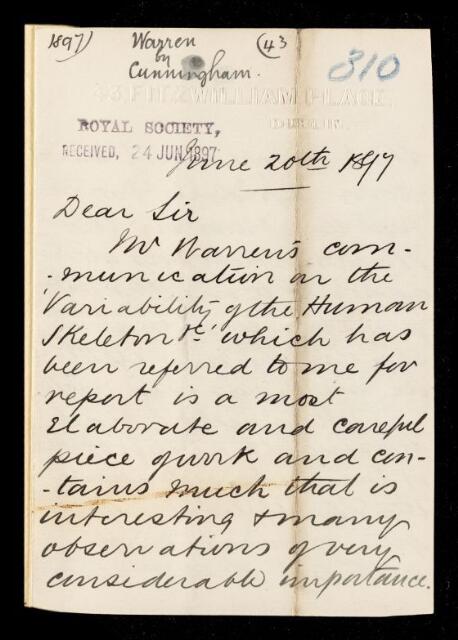 1897)
Warren
by
Cunningham.
(43
310
43 FITZWILLIAM PLACE,
DUBLIN.
ROYAL SOCIETY,
RECEIVED, 24 JUN 1897
June 20th 1897
Dear Sir
Mr Warren's com-
-munication on the
'Variability of the Human
Skeleton &c.' which has
been referred to me for
report is a most
elaborate and careful
piece of work and con-
-tains much that is
interesting & many
observations of very
considerable importance.